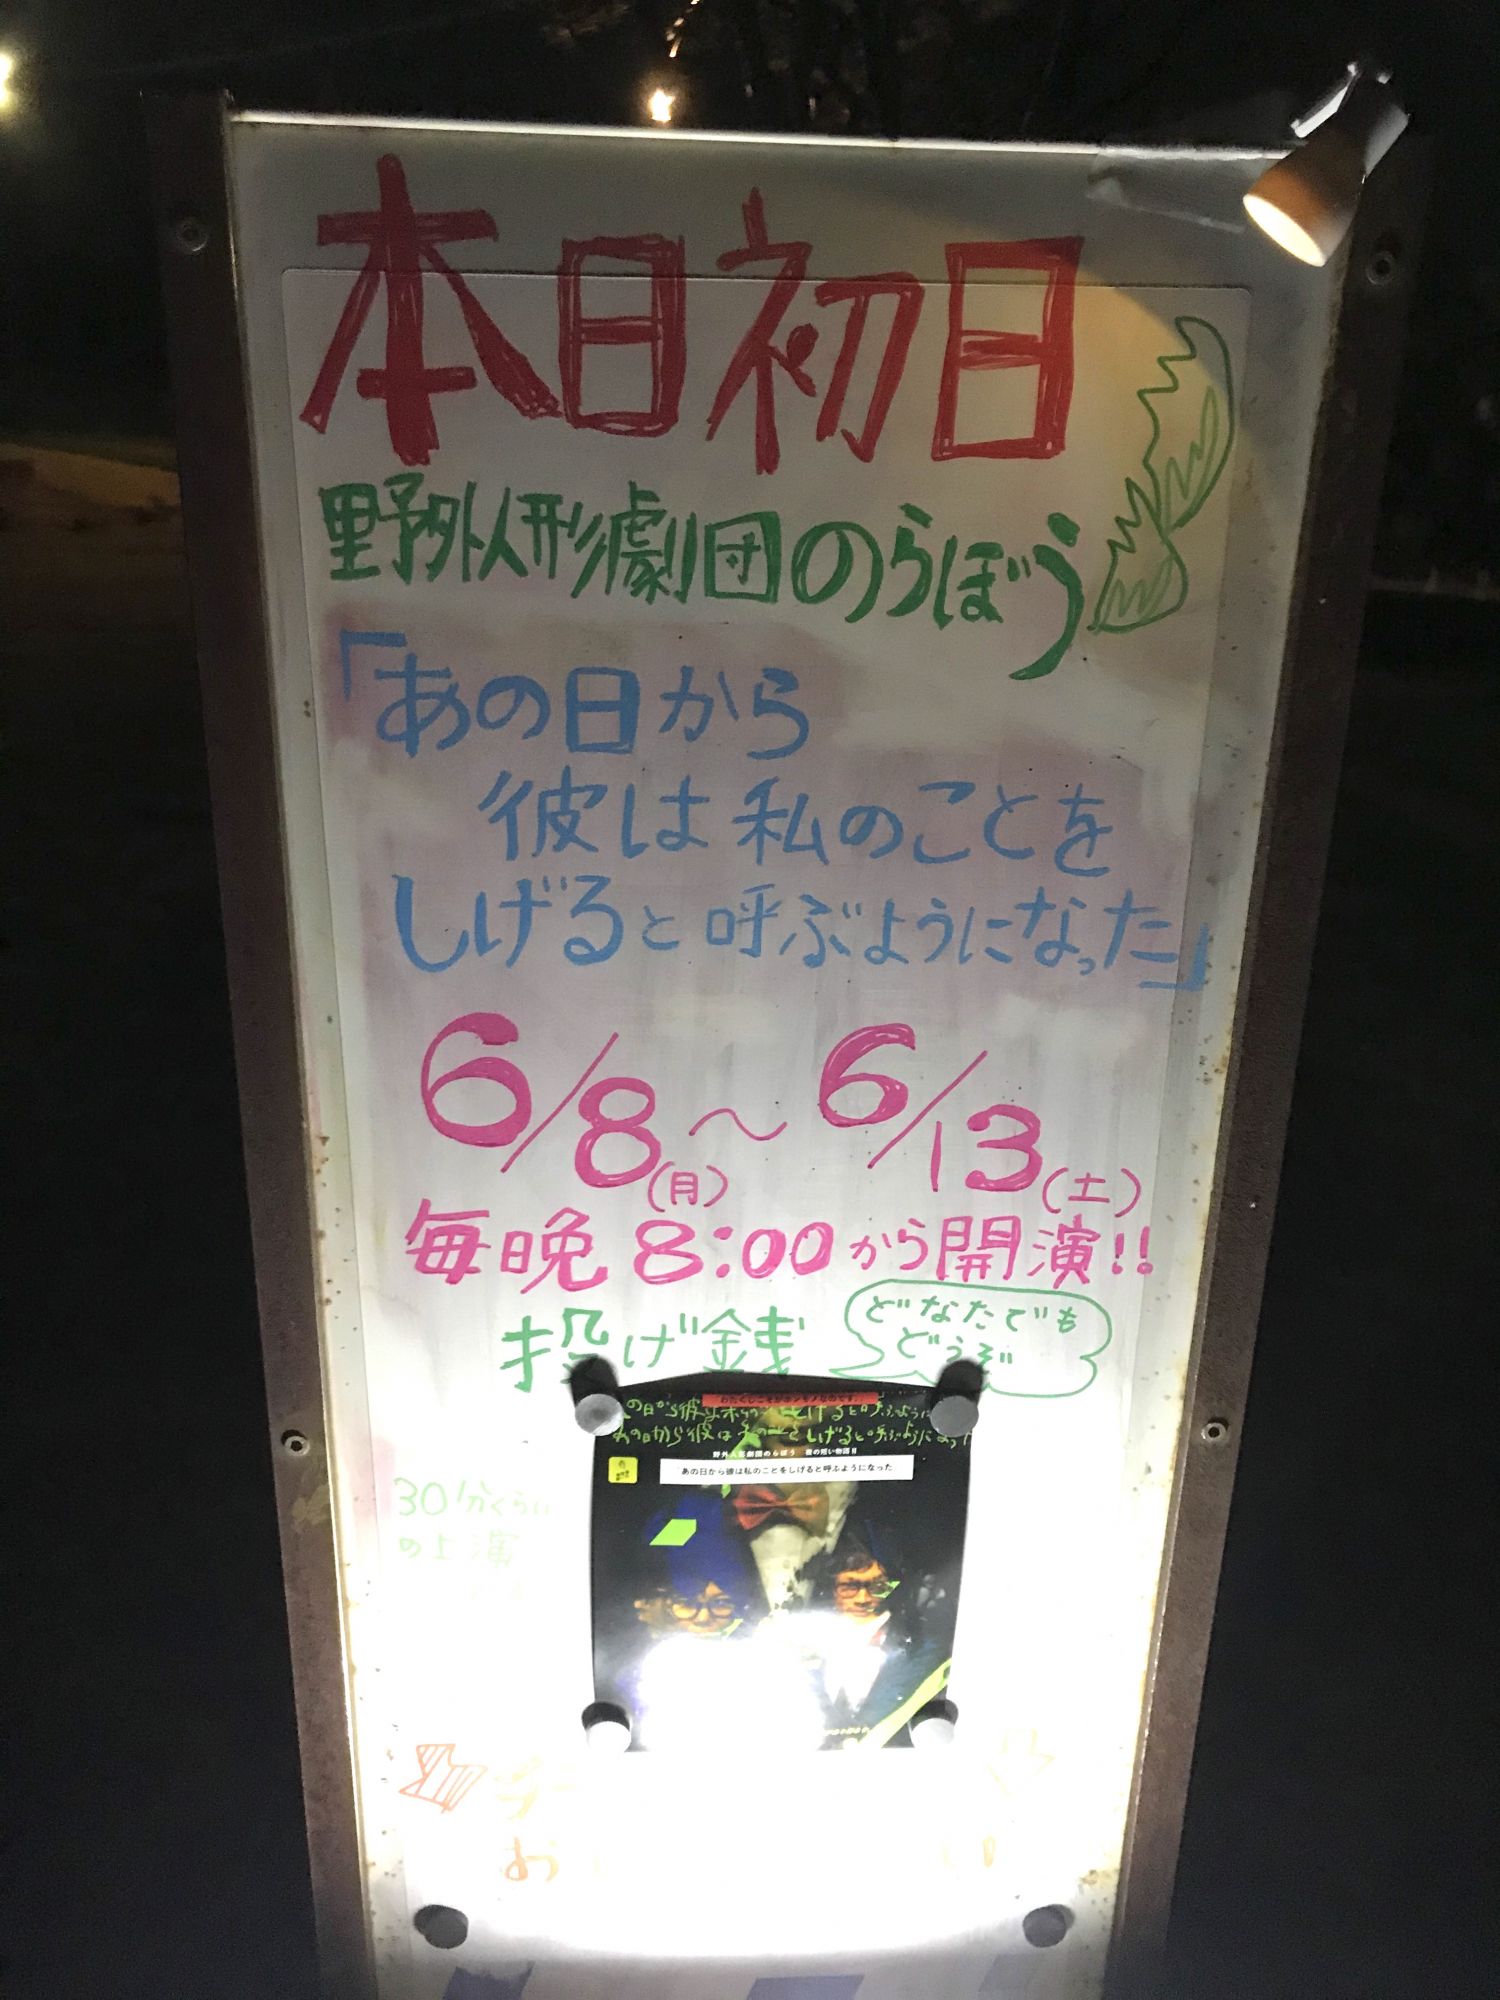 本日初日
野外人形劇団のらぼう
「あの日から
彼は私のことを
しげると呼ぶようになった」
6/8(月)〜6/13(土)
毎晩8:00から開演!!
投げ銭
どなたでも
どうぞ
あの日から彼は私のことをしげると呼ぶようになっ
野外人形劇団のらぼう 夜の短い物語Ⅱ
あの日から彼は私のことをしげると呼ぶようになった
30分くらい
の上演